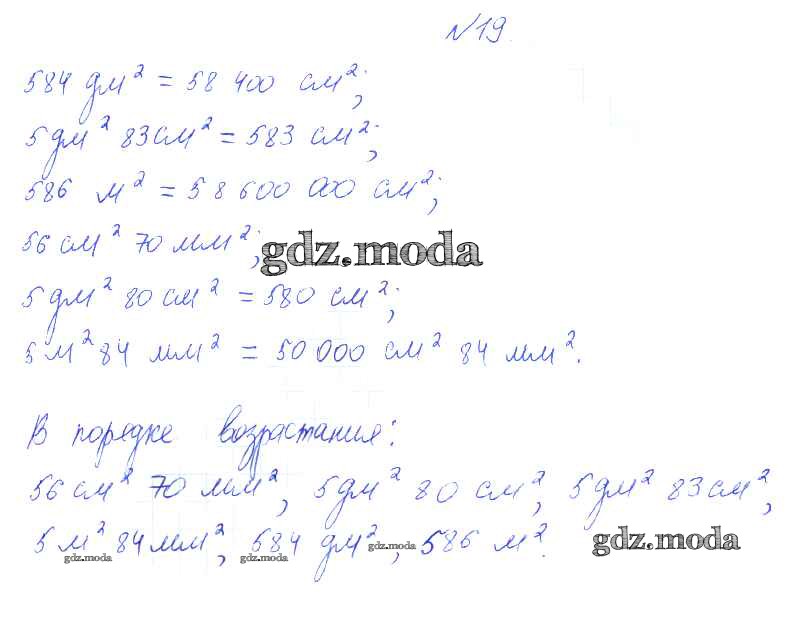 №19.
584 дм² = 58 400 см²;
5 дм² 83 см² = 583 см²;
586 м² = 58 600 000 см²;
56 см² 70 мм²;
gdz.moda
5 дм² 80 см² = 580 см²;
5 м² 84 мм² = 50 000 см² 84 мм².
В порядке возрастания:
56 см² 70 мм², 5 дм² 80 см², 5 дм² 83 см²,
5 м² 84 мм², 584 дм², 586 м².
gdz.moda
gdz.moda
gdz.moda
gdz.moda